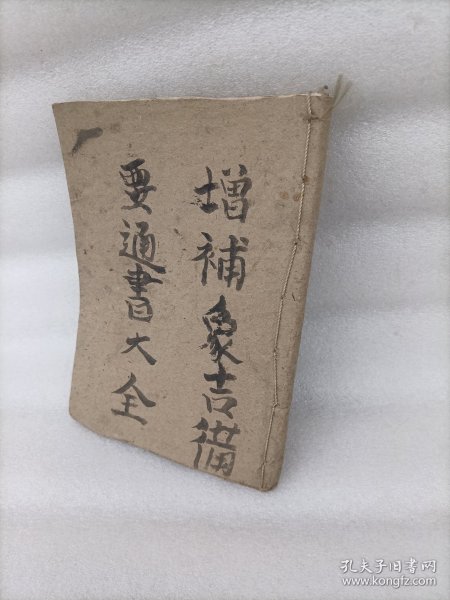 增補象吉備
要通書大全
孔夫子旧书网
www.kongfz.com